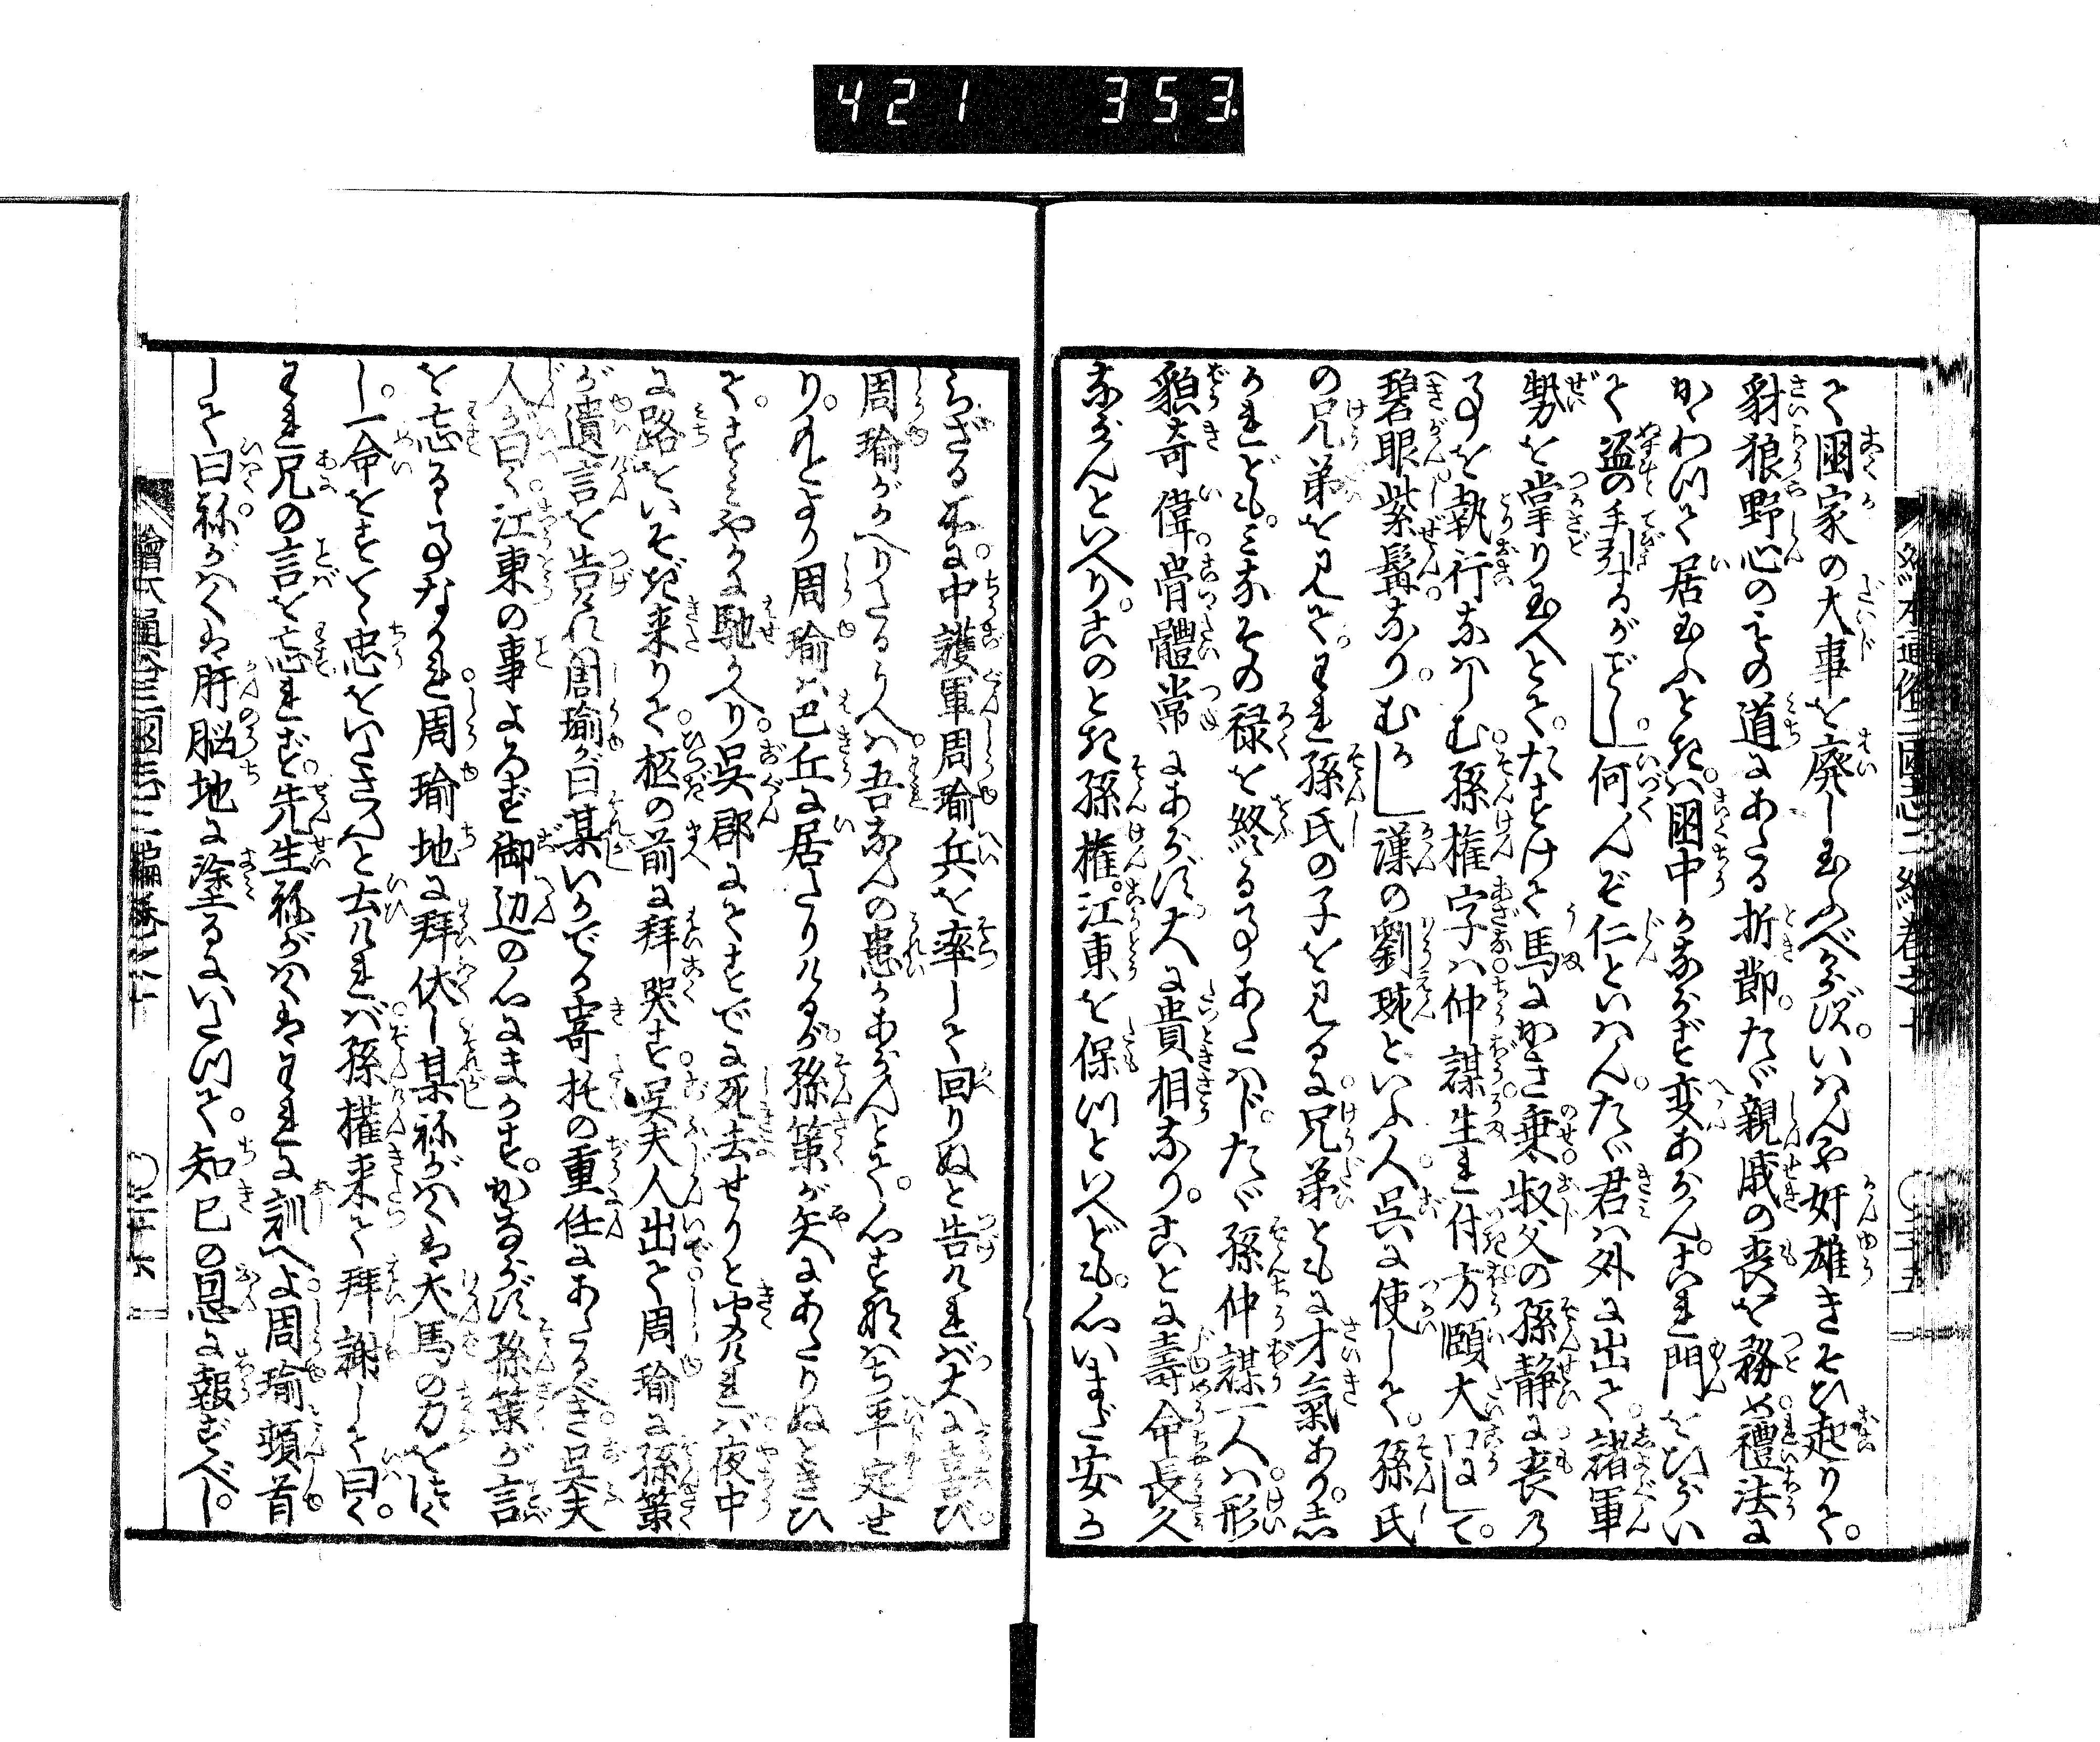 421 353
繪本通俗三國志二編卷之十
〇三十五
て国家の大事を廃し玉ふべからず。いはんや奸雄きそひ起りて。
豺狼野心のもの道にあたる折節。たゞ親戚の喪を務め禮法に
かゝわりて居玉ふときは。国中かならず変あらん。これ門をひらい
て盗の手引するがごとし。何んぞ仁といはんたゞ君は外に出て。諸軍
勢を掌り玉へとて。たすけて馬にかき乗。叔父の孫静に喪の
事を執行なはしむ。孫権字は仲謀生れ付方頤大口にして。
碧眼紫髯なり。むかし漢の劉琬といふ人。呉に使して。孫氏
の兄弟を見て。われ孫氏の子を見るに。兄弟ともに才氣あり。志
かれども。みなその禄を終る事あたはじ。たゞ孫仲謀一人は。形
貌奇偉。骨體常にあらず。大に貴相なり。ことに壽命長久
ならんといへり。このとき孫権。江東を保つといへども。心いまだ安か
らざる所に。中護軍周瑜兵を率して回りぬと告ければ大に喜び。
周瑜がかへりたるうへは。吾なんの患かあらんとて。心すなはち平定せ
り。もとより周瑜は巴丘に居たりけるが。孫策が矢にあたりぬときひ
て。すみやかに馳かへり。呉郡にてすでに死去せりと聞ければ。夜中
に路をいそぎ来りて。柩の前に拝哭す。呉夫人出て。周瑜に孫策
が遺言を告れば周瑜が曰某いかでか寄托の重任にあたるべき。呉夫
人が曰く。江東の事よろず御辺の心にまかす。かならず孫策が言
を忘るゝ事なかれ。周瑜地に拝伏し某ねがはくは犬馬の力をつく
し。一命をすてゝ忠をいたさんと去ければ。孫權来て拝謝して曰く。
われ兄の言を忘れず。先生ねがはくはわれに訓へよ。周瑜頓首
して曰。ねがはくは肝脳地に塗るにいたりて。知己の恩に報ずべし。
繪本通俗三國志二編卷之十
〇三十六